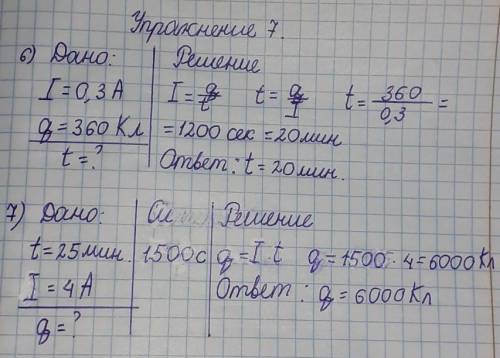 Упражнение 7.
6) Дано: Решение
I = 0,3 А I = q/t t = q/I t = 360/0,3 =
q = 360 Кл = 1200 сек = 20 мин
t = ? Ответ: t = 20 мин.
7) Дано: Си Решение
t = 25 мин. 1500 с q = I · t q = 1500 · 4 = 6000 Кл
I = 4 А Ответ: q = 6000 Кл
q = ?